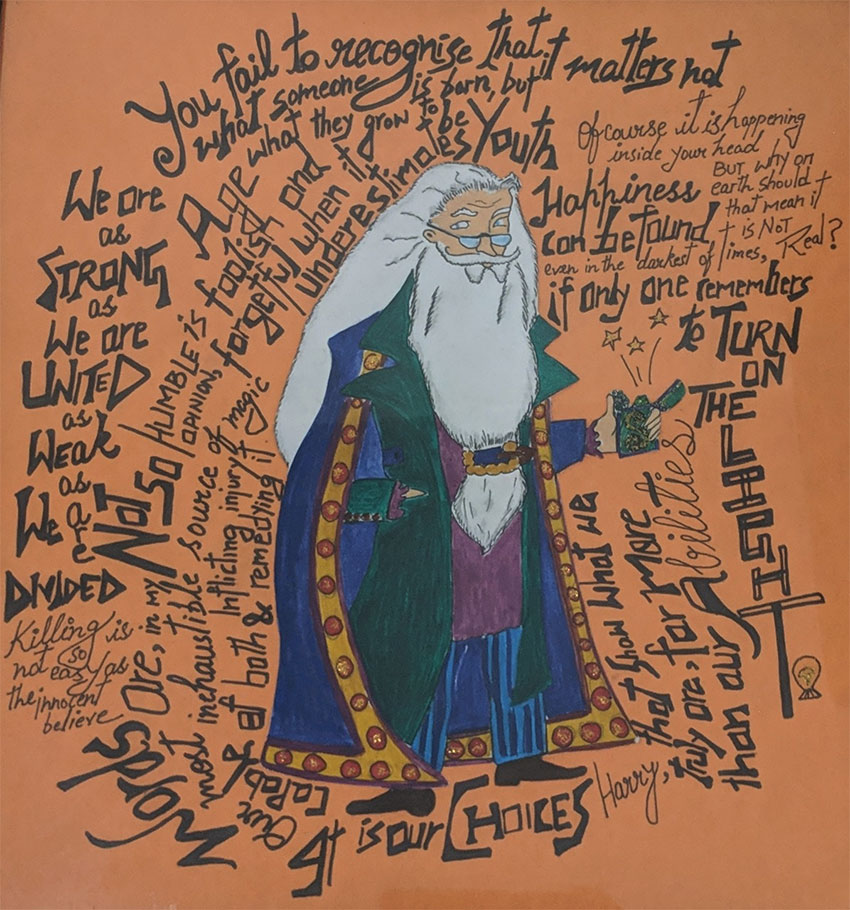 You fail to recognise that it matters not
what someone is born, but
what they grow to be
Age is foolish and
forgetful when it
underestimates Youth
Of course it is happening
inside your head
BUT why on
earth should
that mean it
is NOT
Real?
Happiness
can be found,
even in the darkest of times,
if only one remembers
to TURN
ON
THE
LIGHT
We are
as
STRONG
as
We are
UNITED
as
Weak
as
We are
DIVIDED
Killing is
not so
easy as
the innocent
believe
Words are, in my
Not so HUMBLE
OPINION,
Our most inexhaustible source of magic
Capable of both Inflicting injury
& remedying it
It is our CHOICES Harry, that show what we
truly are, far more
than our Abilities